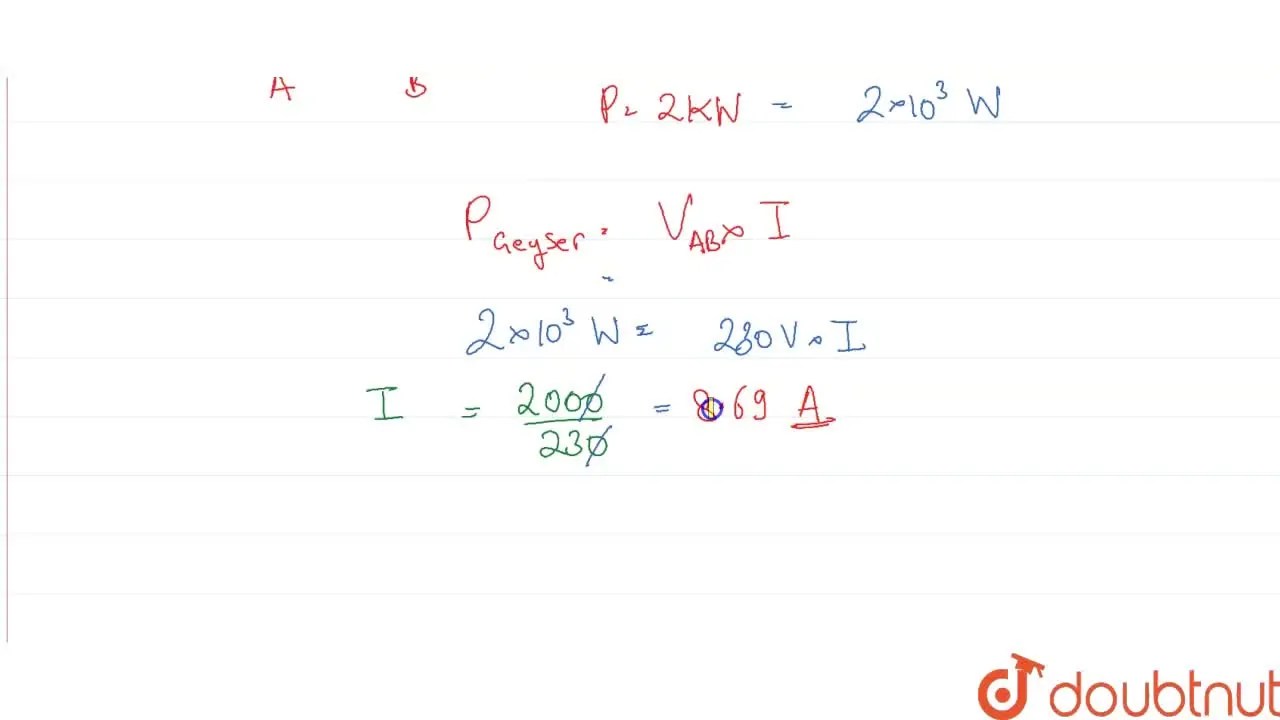 A B
P = 2KW = 2×10³ W
P Geyser = V AB × I
=
2×10³ W = 230V × I
I = 2000/230 = 8.69 A
doubtnut